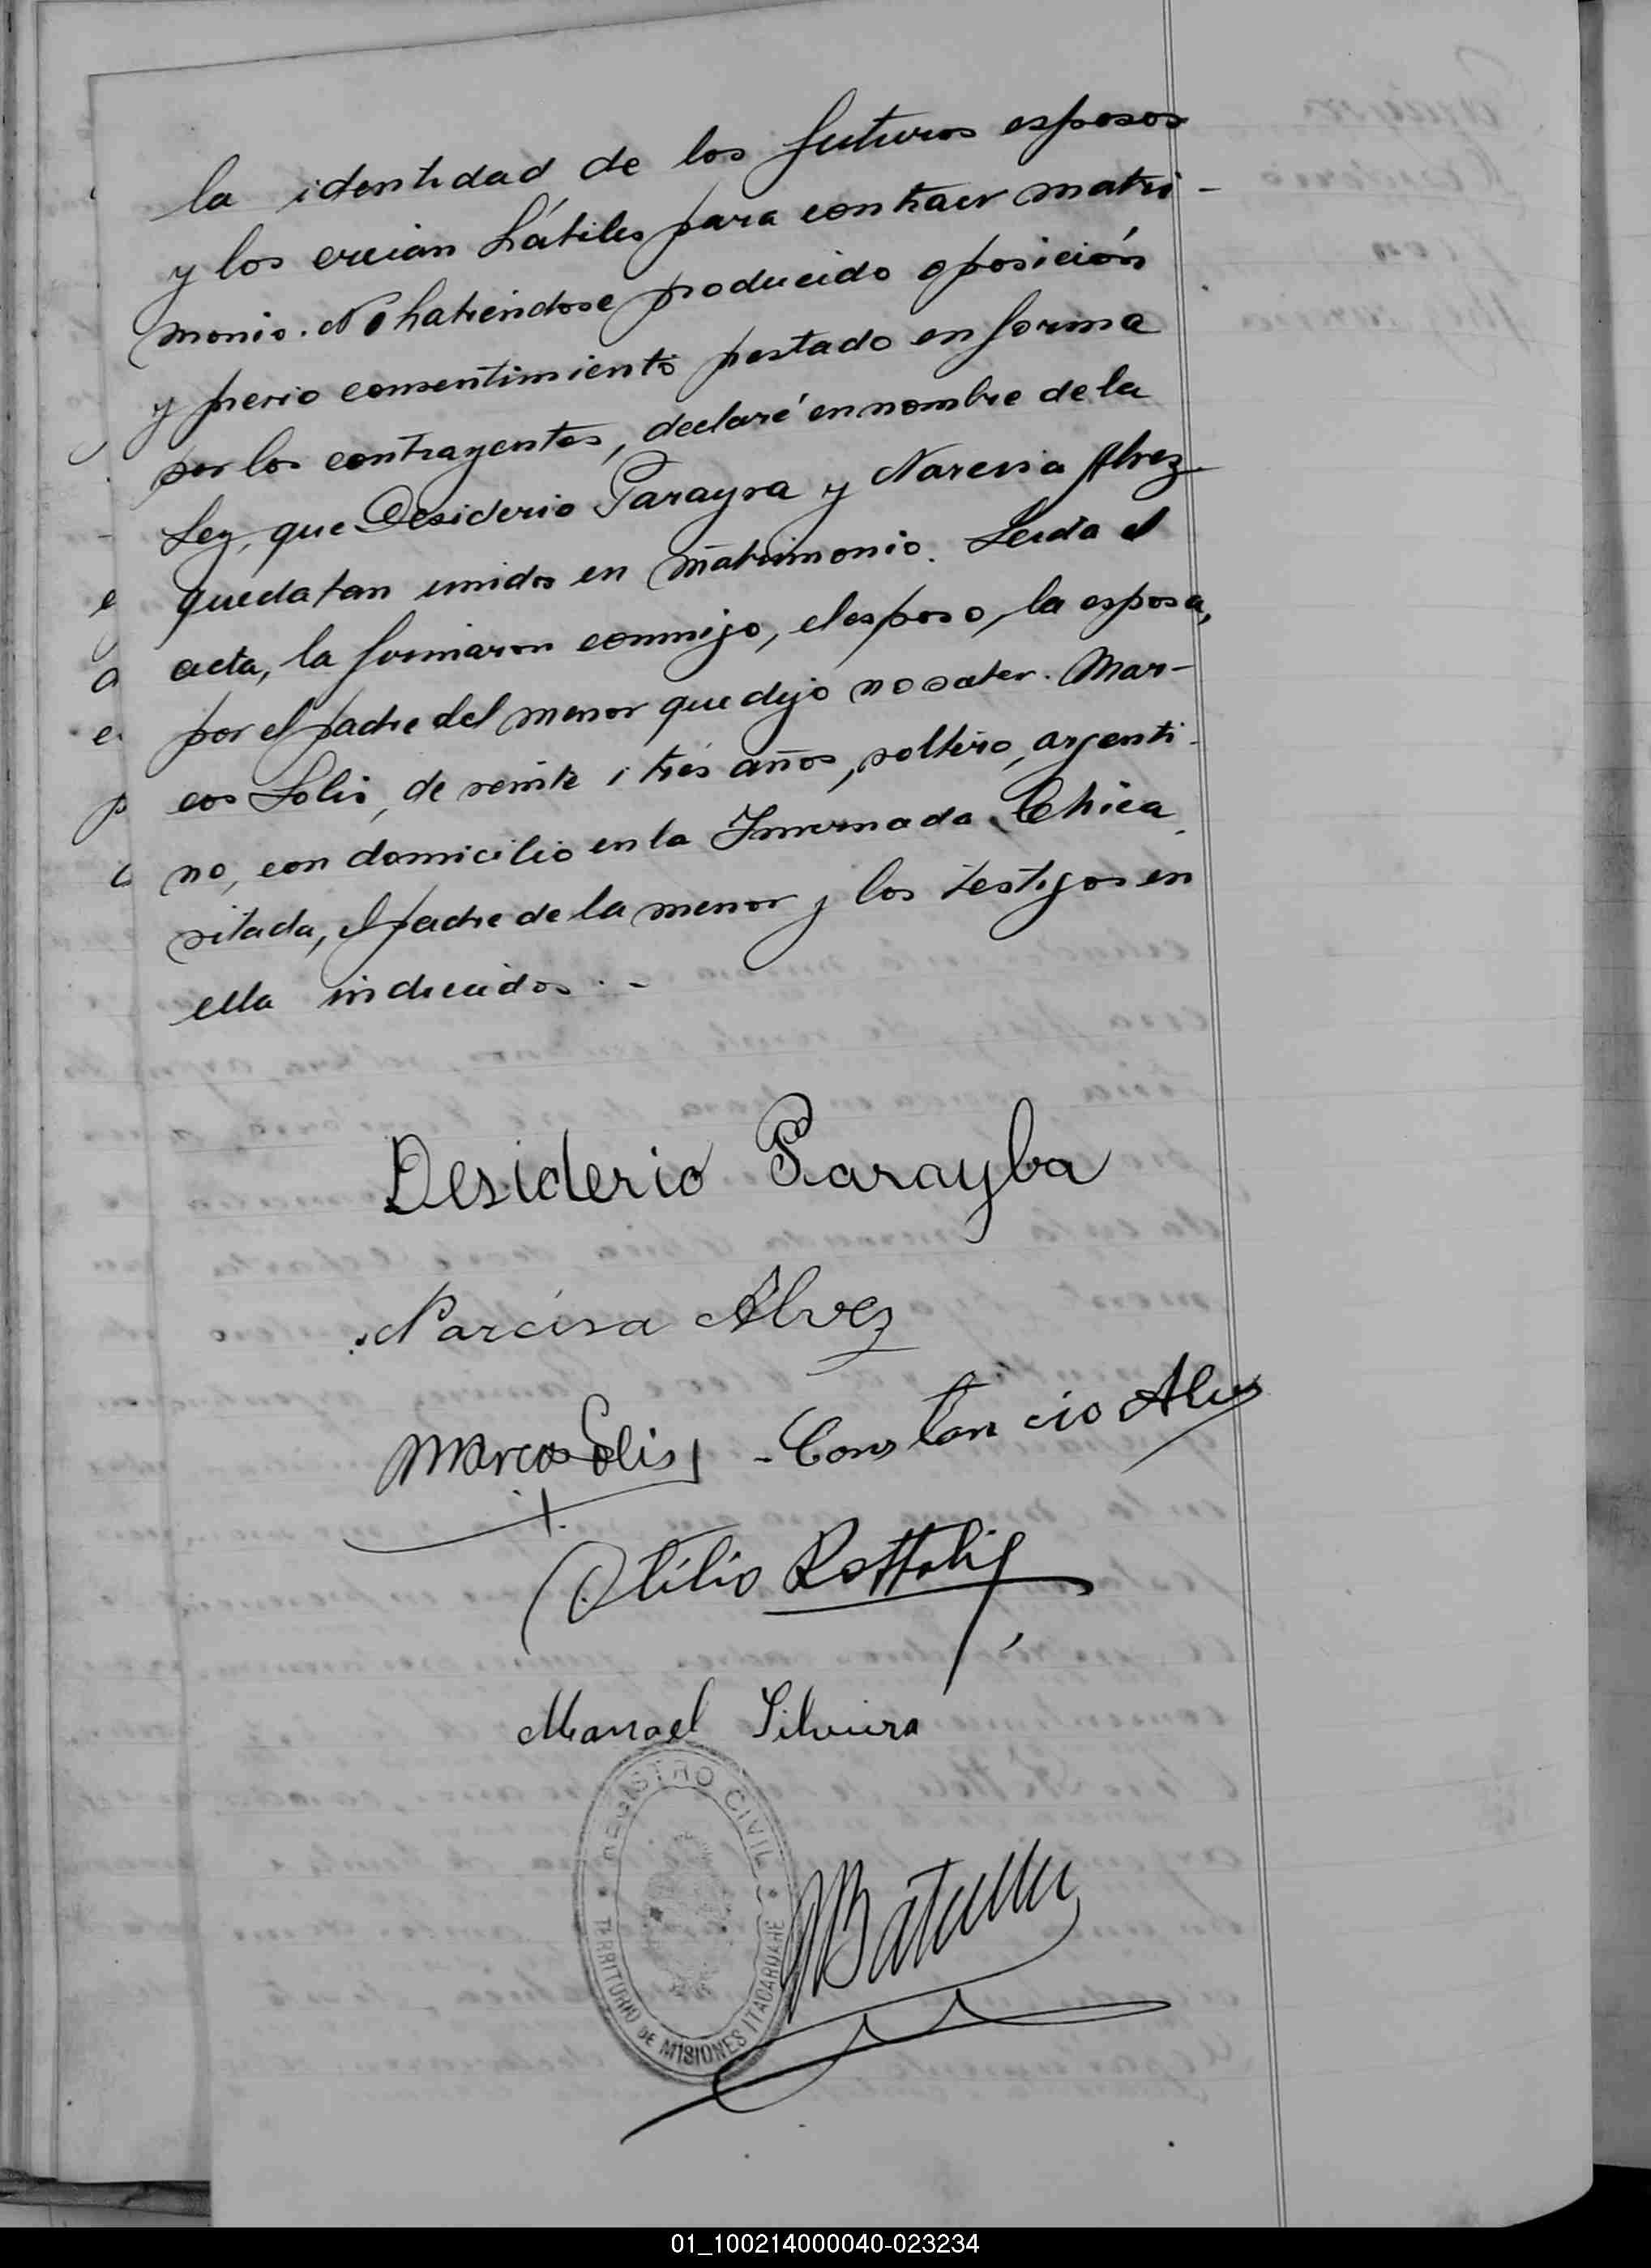 la identidad de los futuros esposos
y los creian hábiles para contraer matri-
monio. No habiéndose producido oposición
y previo consentimiento prestado en forma
por los contrayentes, declaré en nombre de la
Ley, que Desiderio Parayva y Narcisa Alvez
quedaban unidos en matrimonio. Leida el
acta, la firmaron conmigo, el esposo, la esposa,
por el padre del menor que dijo no saber. Mar-
cos Solis, de veinte i tres años, soltero, argenti-
no, con domicilio en la Invernada Chica
citada, el padre de la menor y los testigos en
ella indicados. -
Desiderio Parayba
Narcisa Alvez
Marcos Solis - Constancio Alvez
Otilio
Manoel Silveira
REGISTRO CIVIL
TERRITORIO DE MISIONES ITACARUARE
01_100214000040-023234